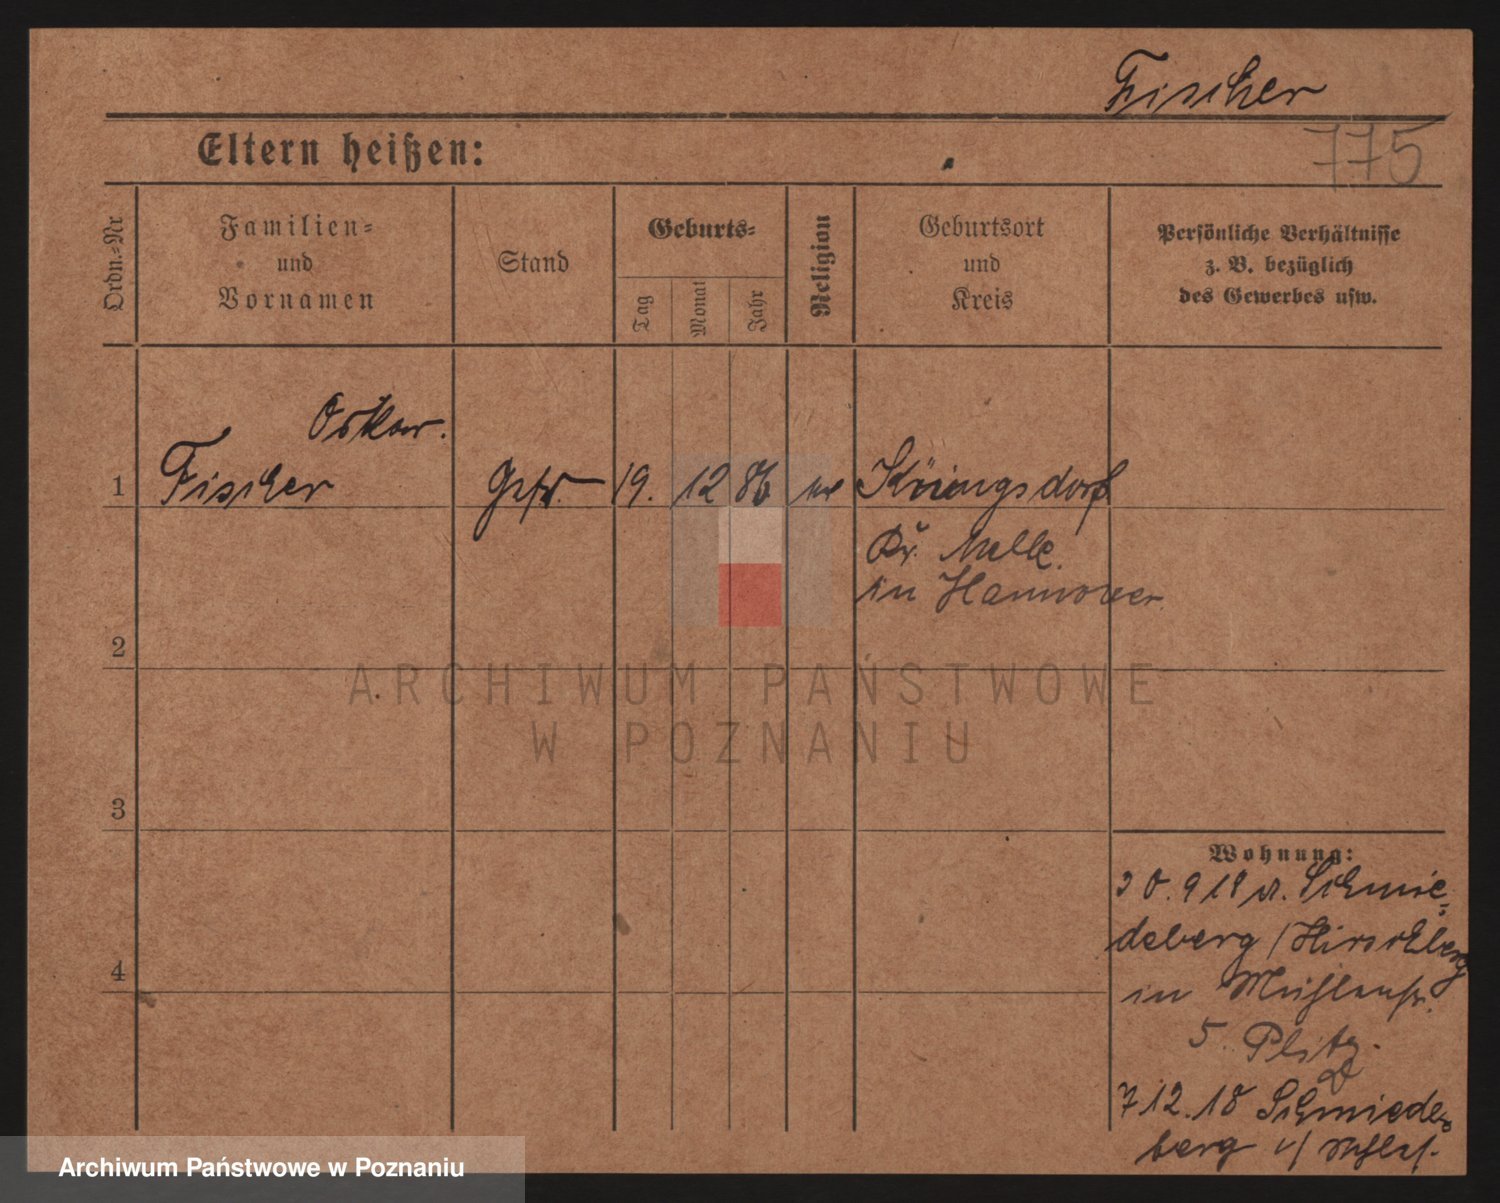 Fischer
775
Eltern heißen:
Ordn.-Nr
Familien-
und
Vornamen
Stand
Geburts-
Tag
Monat
Jahr
Religion
Geburtsort
und
Kreis
Persönliche Verhältnisse
z. B. bezüglich
des Gewerbes usw.
Oskar.
1 Fischer Gefr. 19. 12 86 Köingsdorf
Kr. Melle.
in Hannover
2
3
4
Wohnung:
30.9 18 Schmie-
deberg / Hirschberg
in Mühlenstr.
5.
7 12.18 Schmiede-
berg
ARCHIWUM PAŃSTWOWE
W POZNANIU
Archiwum Państwowe w Poznaniu